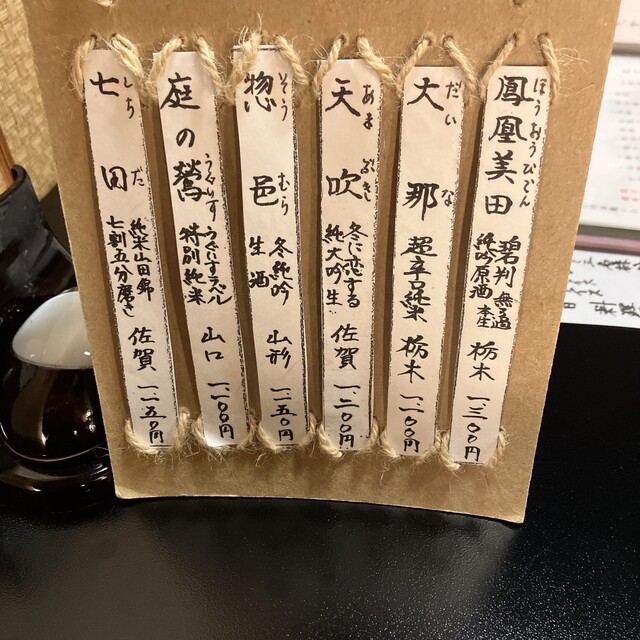 鳳凰美田
ほうおうびでん
碧判 無ろ過
純吟原酒 本生
栃木
一、三〇〇円
大那
だいな
超辛口純米
栃木
一、一〇〇円
天吹
あまぶき
冬に恋する
純大吟 生
佐賀
一、二〇〇円
惣邑
そうむら
冬純吟
生酒
山形
一、一五〇円
庭の鶯
うぐいす
うぐいすラベル
特別純米
山口
一、一〇〇円
七田
しちだ
純米山田錦
七割五分磨き
佐賀
一、一五〇円